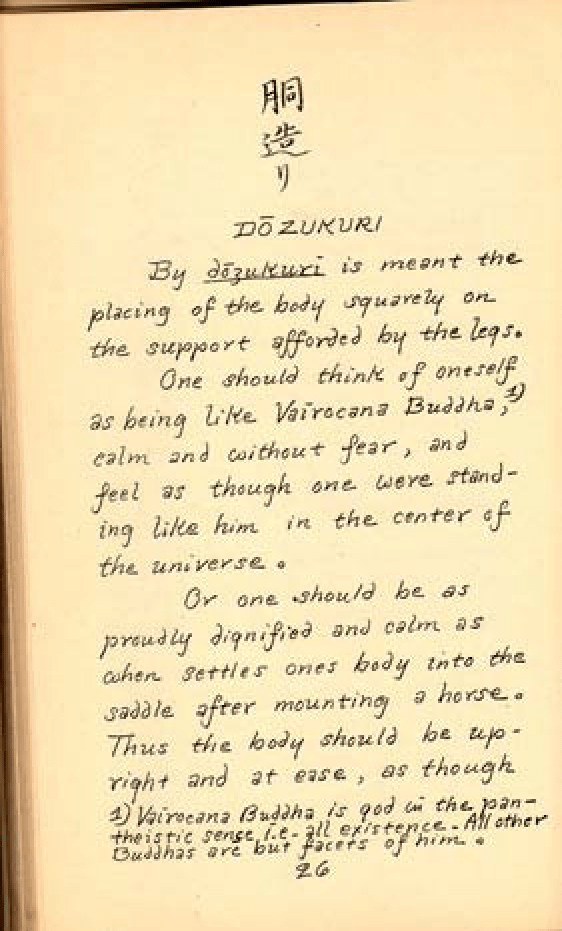 胴
造
り
DŌZUKURI
By dōzukuri is meant the
placing of the body squarely on
the support afforded by the legs.
One should think of oneself
as being like Vairocana Buddha,1)
calm and without fear, and
feel as though one were stand-
ing like him in the center of
the universe.
Or one should be as
proudly dignified and calm as
when settles ones body into the
saddle after mounting a horse.
Thus the body should be up-
right and at ease, as though
1) Vairocana Buddha is god in the pan-
theistic sense i.e. all existence. All other
Buddhas are but facets of him.
26